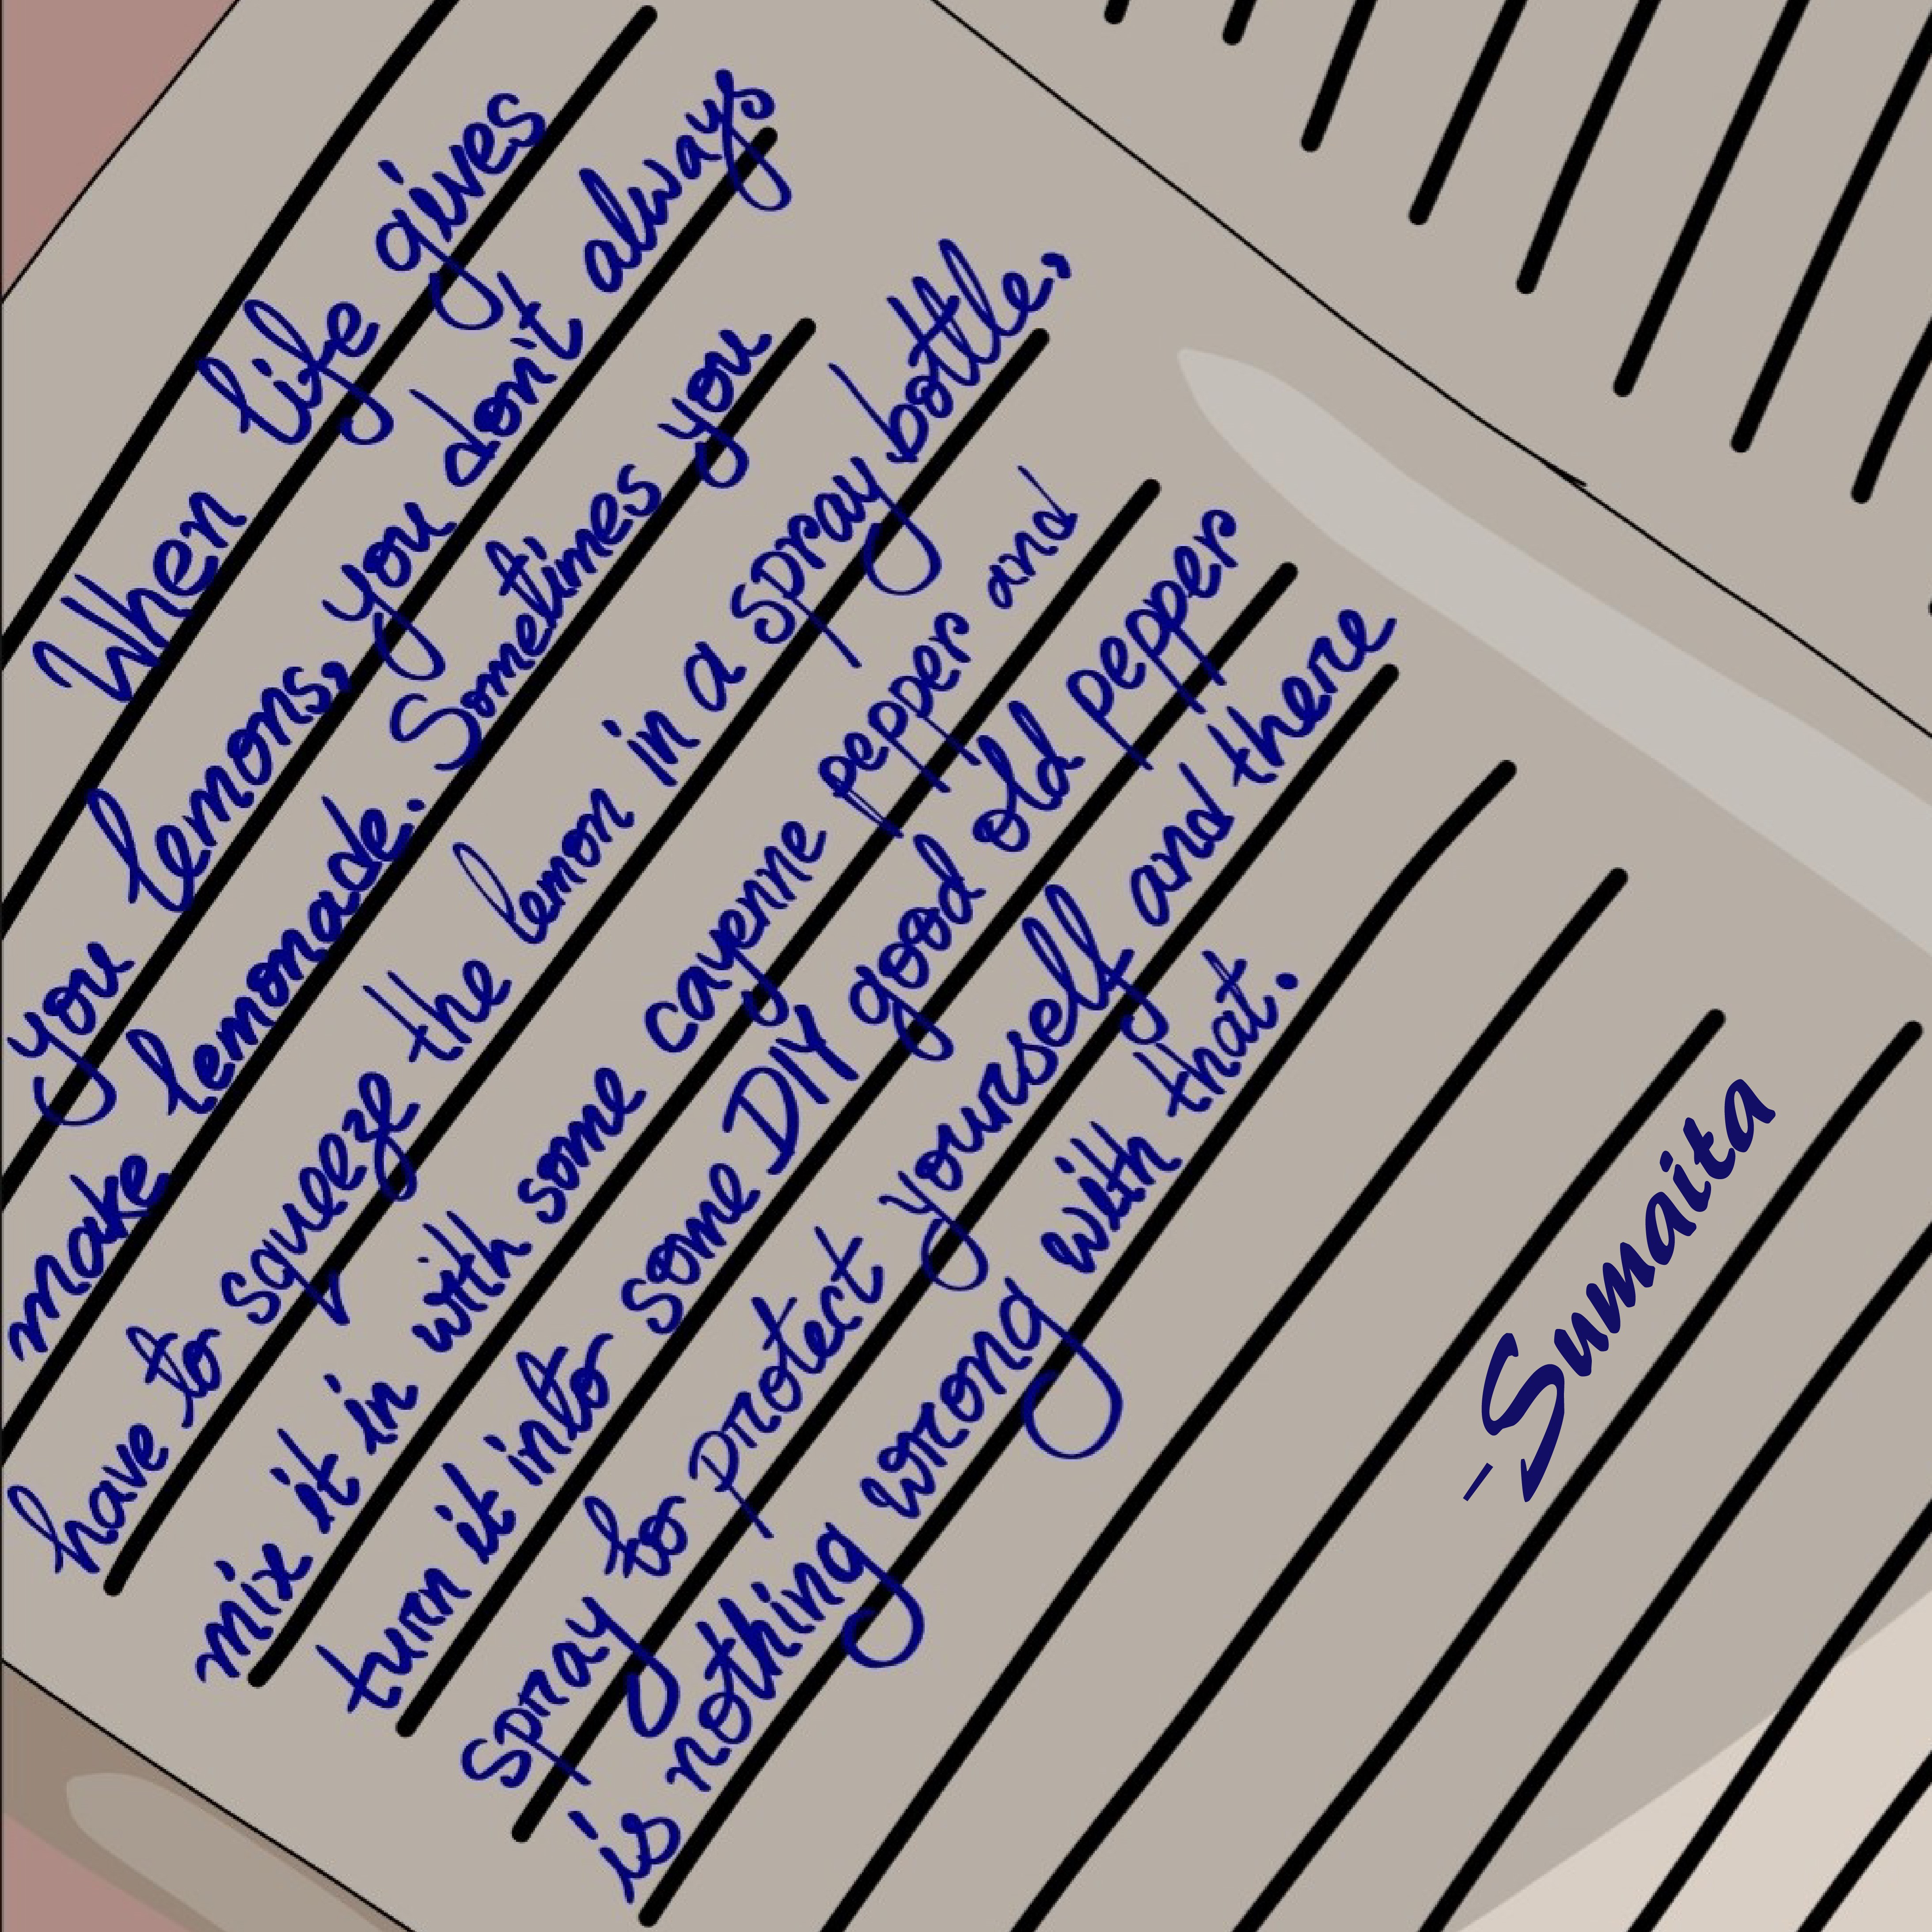 When life gives
you lemons, you don't always
make lemonade. Sometimes you
have to squeeze the lemon in a spray bottle,
mix it in with some cayenne pepper and
turn it into some DIY good old pepper
spray to protect yourself and there
is nothing wrong with that.
-Sumaita